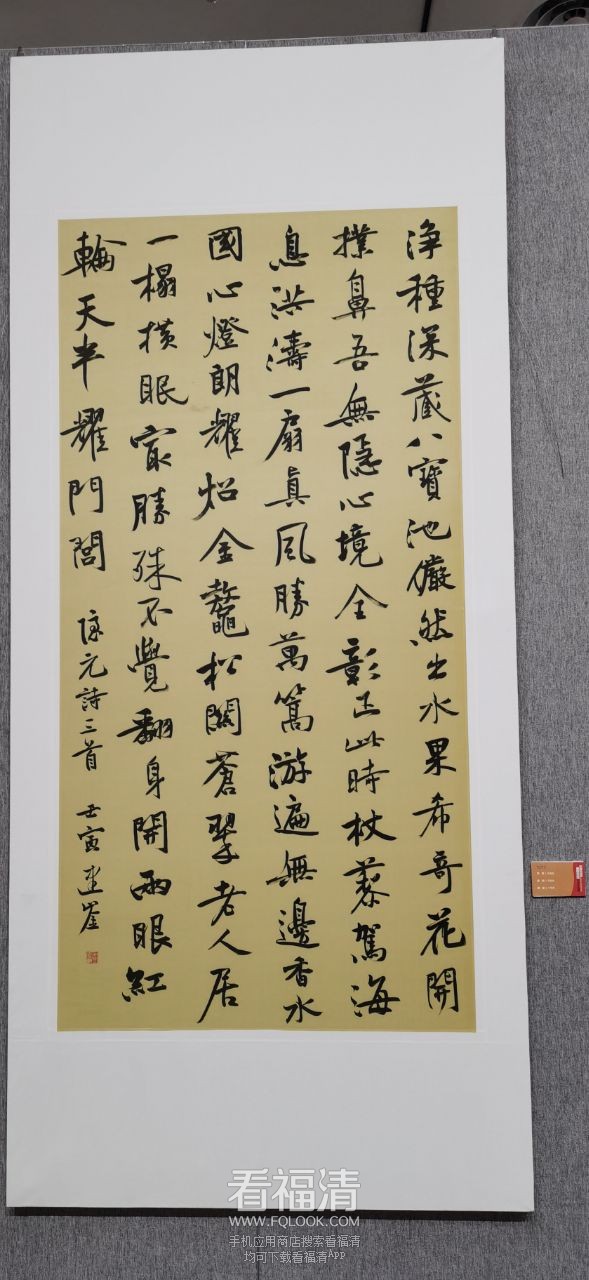 淨種深藏八寶池儼然出水果希奇花開
撲鼻吾無隱心境全彰正此時杖藜駕海
息洪濤一扇真風勝萬篙游遍無邊香水
國心燈朗耀炤金鼇松關蒼翠老人居
一榻橫眠㝡勝殊不覺翻身開兩眼紅
輪天半耀門閭
隱元詩三首 壬寅
看福清
WWW.FQLOOK.COM
手机应用商店搜索看福清
均可下载看福清App